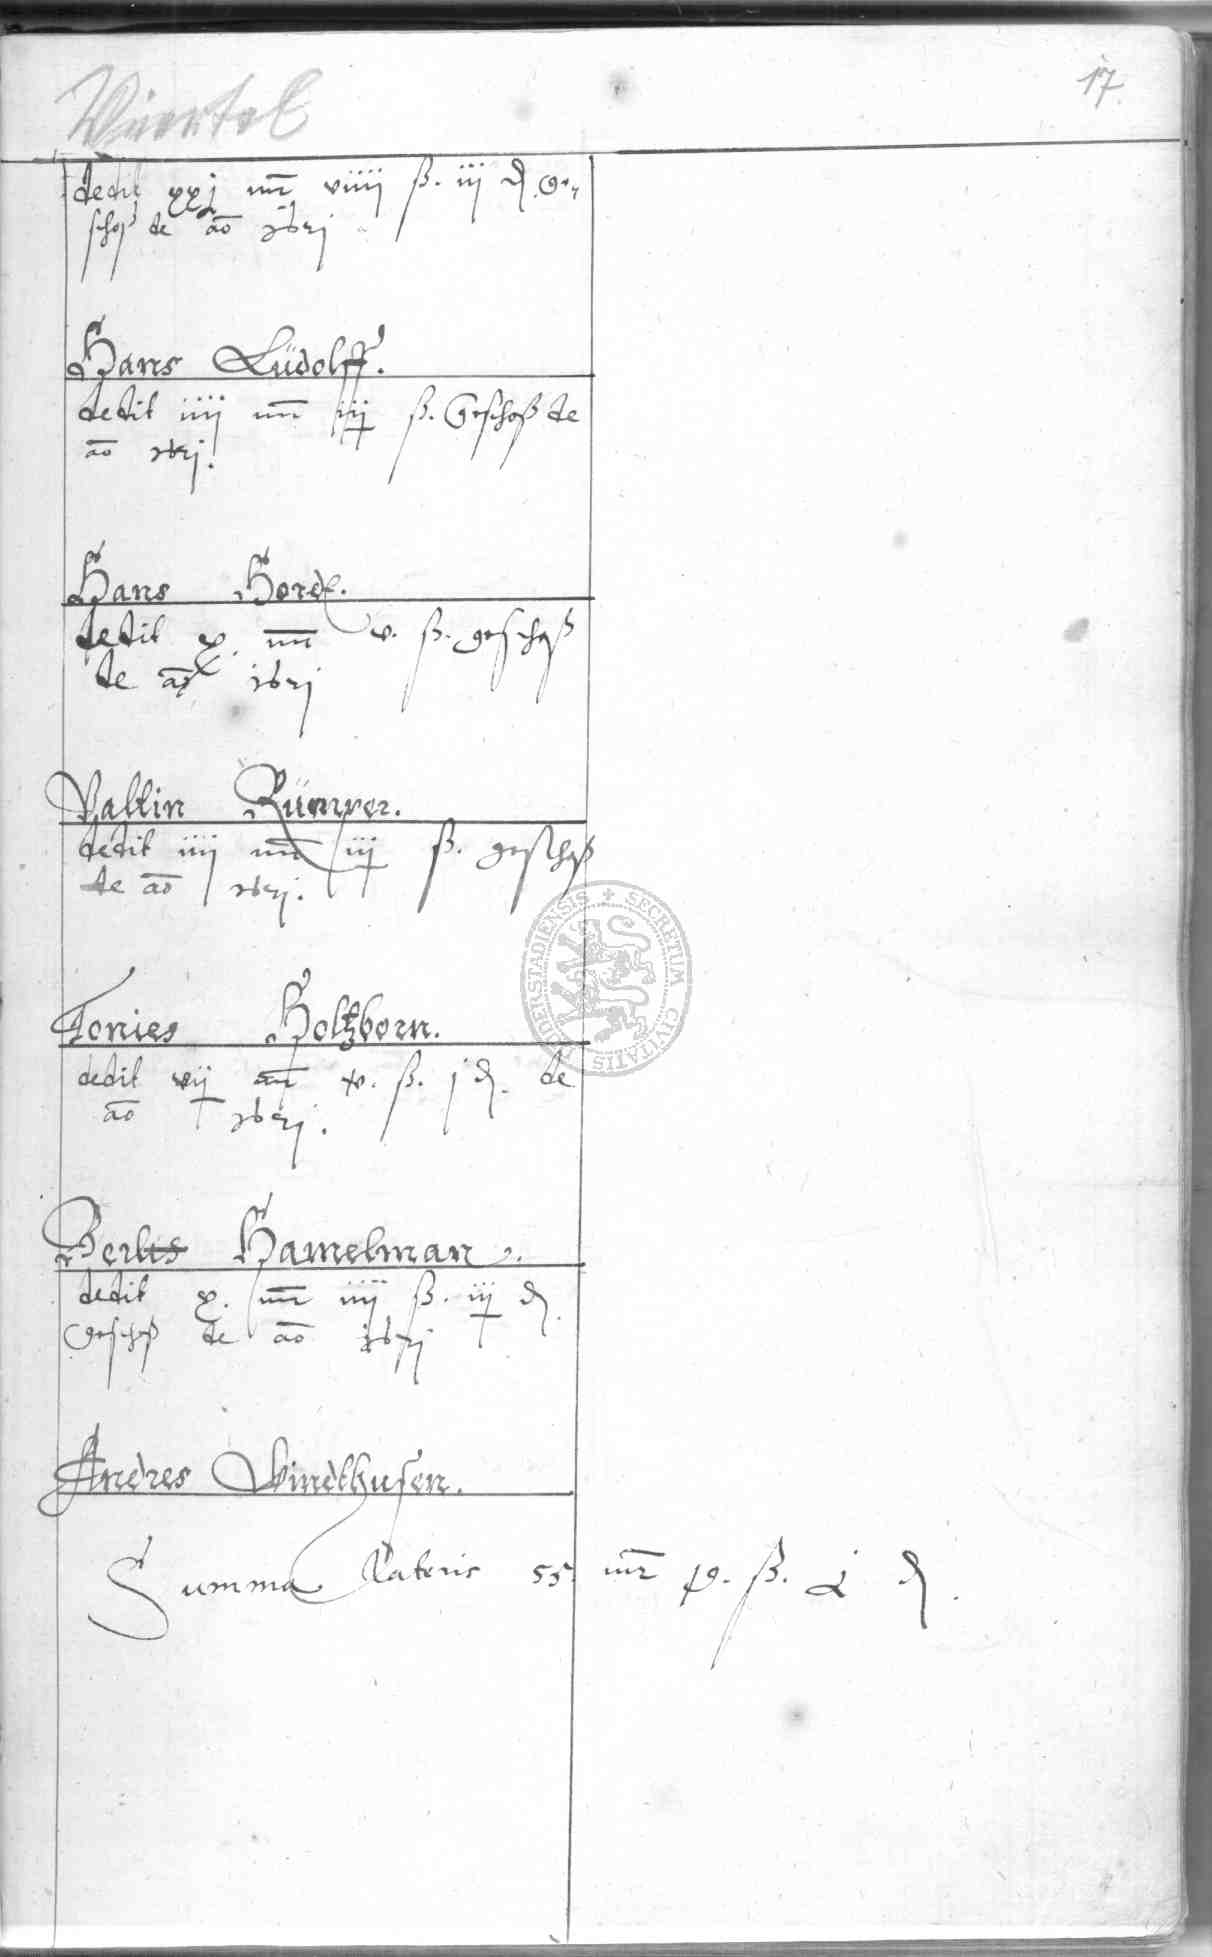 Viertel
17.
dedit xxj mr viiij ß. iij d. Ge
schoß de ao 1621
Hans Lüdolff.
dedit iiij mr iij ß. Geschoß de
ao 1621.
Hans Hord.
dedit x. mr v. ß. geschoß
de ao 1621
Valtin
dedit iiij mr iij ß. geschoß
de ao 1621.
Tonies Holtzborn.
dedit vij mr v. ß. j d. de
ao 1621.
Hamelman.
dedit x. mr iiij ß. iij d.
Geschoß de ao 1621
Andres Windthusen.
Summa Lateris 55 mr ß. d.
SECRETUM CIVITATIS DUDERSTADIENSIS